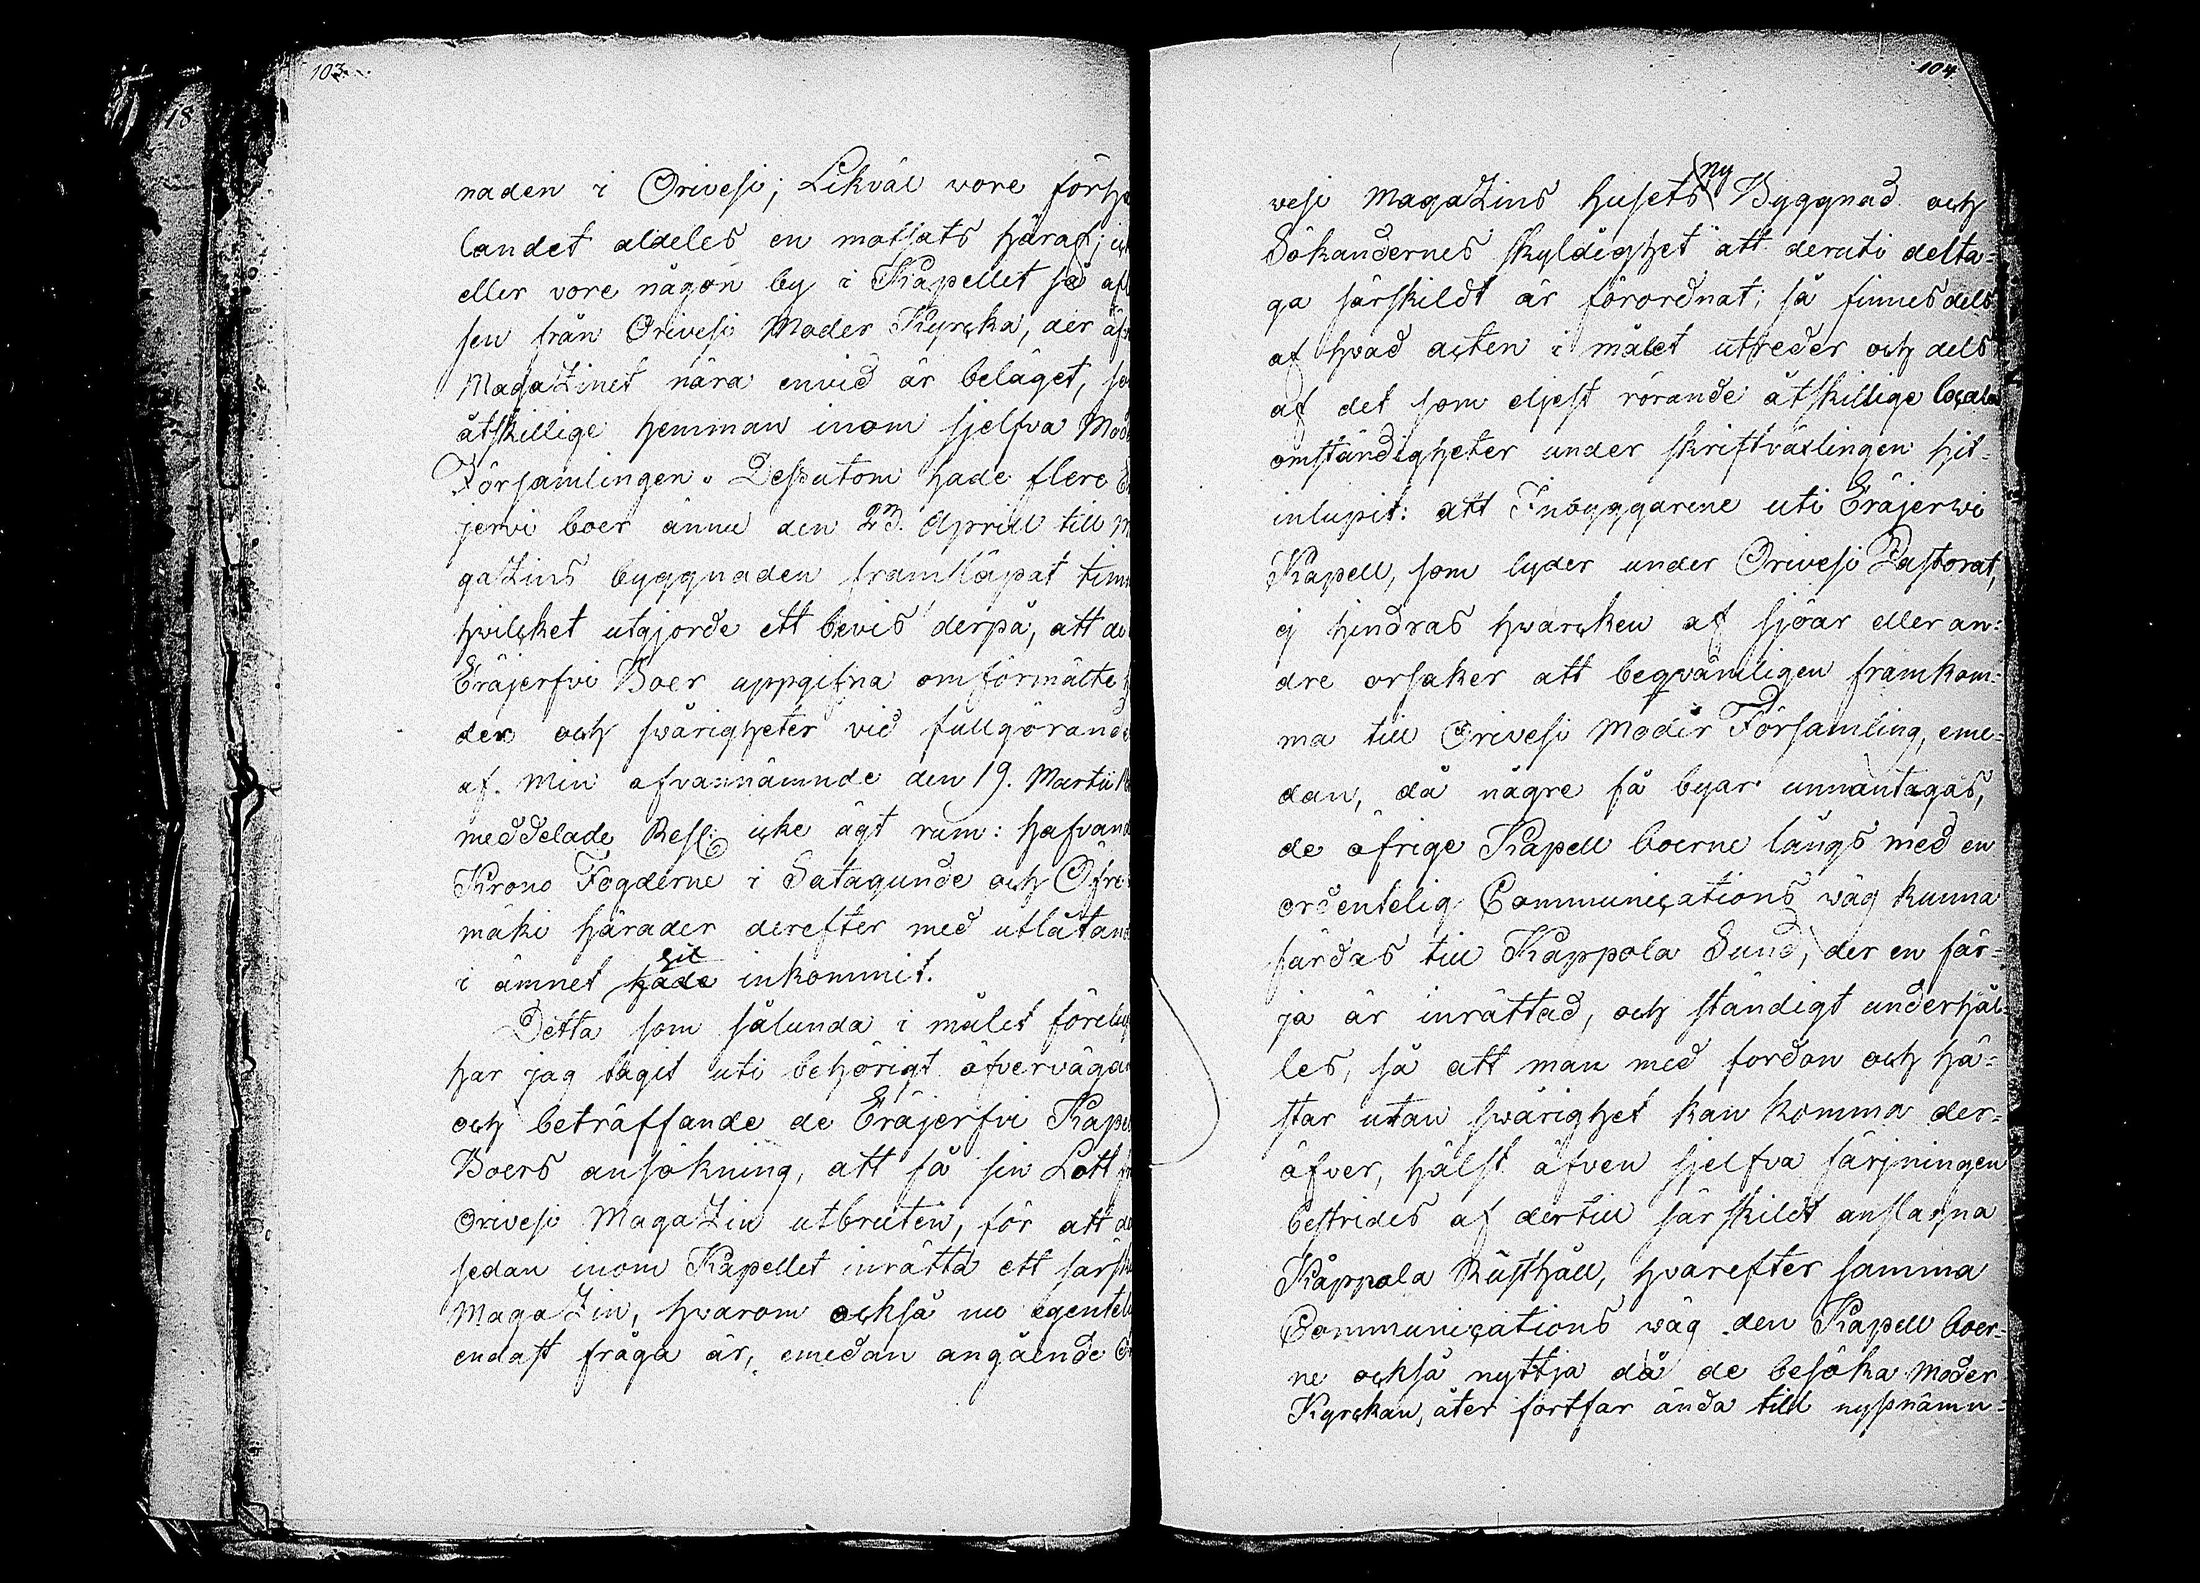 103.
18
naden i Orivesi; Likväl vore förhå
landet aldeles en motsats häraf; ick
eller vore någon by i Kapellet så afl
sen från Orivesi Moder Kyrcka, der äf
MagaZinet nära envid är beläget, so
åtskillige hemman inom sjelfva Mod
Församlingen. Dessutom hade flere E
jervi boer ännu den 23. Aprill till M
gaZins byggnaden framsläpat tim
hvilcket utgjorde ett bevis derpå, att de
Eräjerfvi Boer uppgifna omförmälte h
der och svårigheter vid fullgörande
af. Min ofvannämnde den 19. Martii
meddelade Resl: icke ägt rum: hafvand
Krono Fogderne i Satagunde och Öfre
mäki härader derefter med utlåtand
hit
i ämnet hade inkommit.
Detta som sålunda i målet förelup
har jag tagit uti behörigt öfvervägan
och beträffande de Eräjerfvi Kape
Boers ansökning, att få sin Lott
Orivesi MagaZin utbruten, för att de
sedan inom Kapellet inrätta ett särsk
MagaZin, hvarom också nu egentel
endast fråga är, emedan angående O
104
ny
vesi MagaZins husets Byggnad och
Sökandernes skyldighet att deruti delta=
ga särskildt är förordnat; så finnes dels
af hvad acten i målet utreder och dels
af det som eljest rörande åtskillige locala
omständigheter under skriftväxlingen hit=
inlupit: att Inbyggarene uti Eräjerwi
Kapell, som lyder under Orivesi Pastorat,
ej hindras hwarcken af sjöar eller an=
dre orsaker att beqvämligen framkom=
ma till Orivesi Moder Församling, eme=
dan, då någre få byar unnantagas,
de öfrige Kapell boerne längs med en
ordentelig Communications wäg kunna
färdas till Kappola Sund, der en fär=
ja är inrättad, och ständigt underhål=
les, så att man med fordon och hä=
star utan swårighet kan komma der=
öfver, hälst äfven sjelfva färjningen
bestrides af dertill särskildt anslagna
Kappola Rusthåll, hvarefter samma
Communications wäg den Kapell boer=
ne också nyttja då de besöka Moder
Kyrckan, åter fortfar ända till nyssnämn=